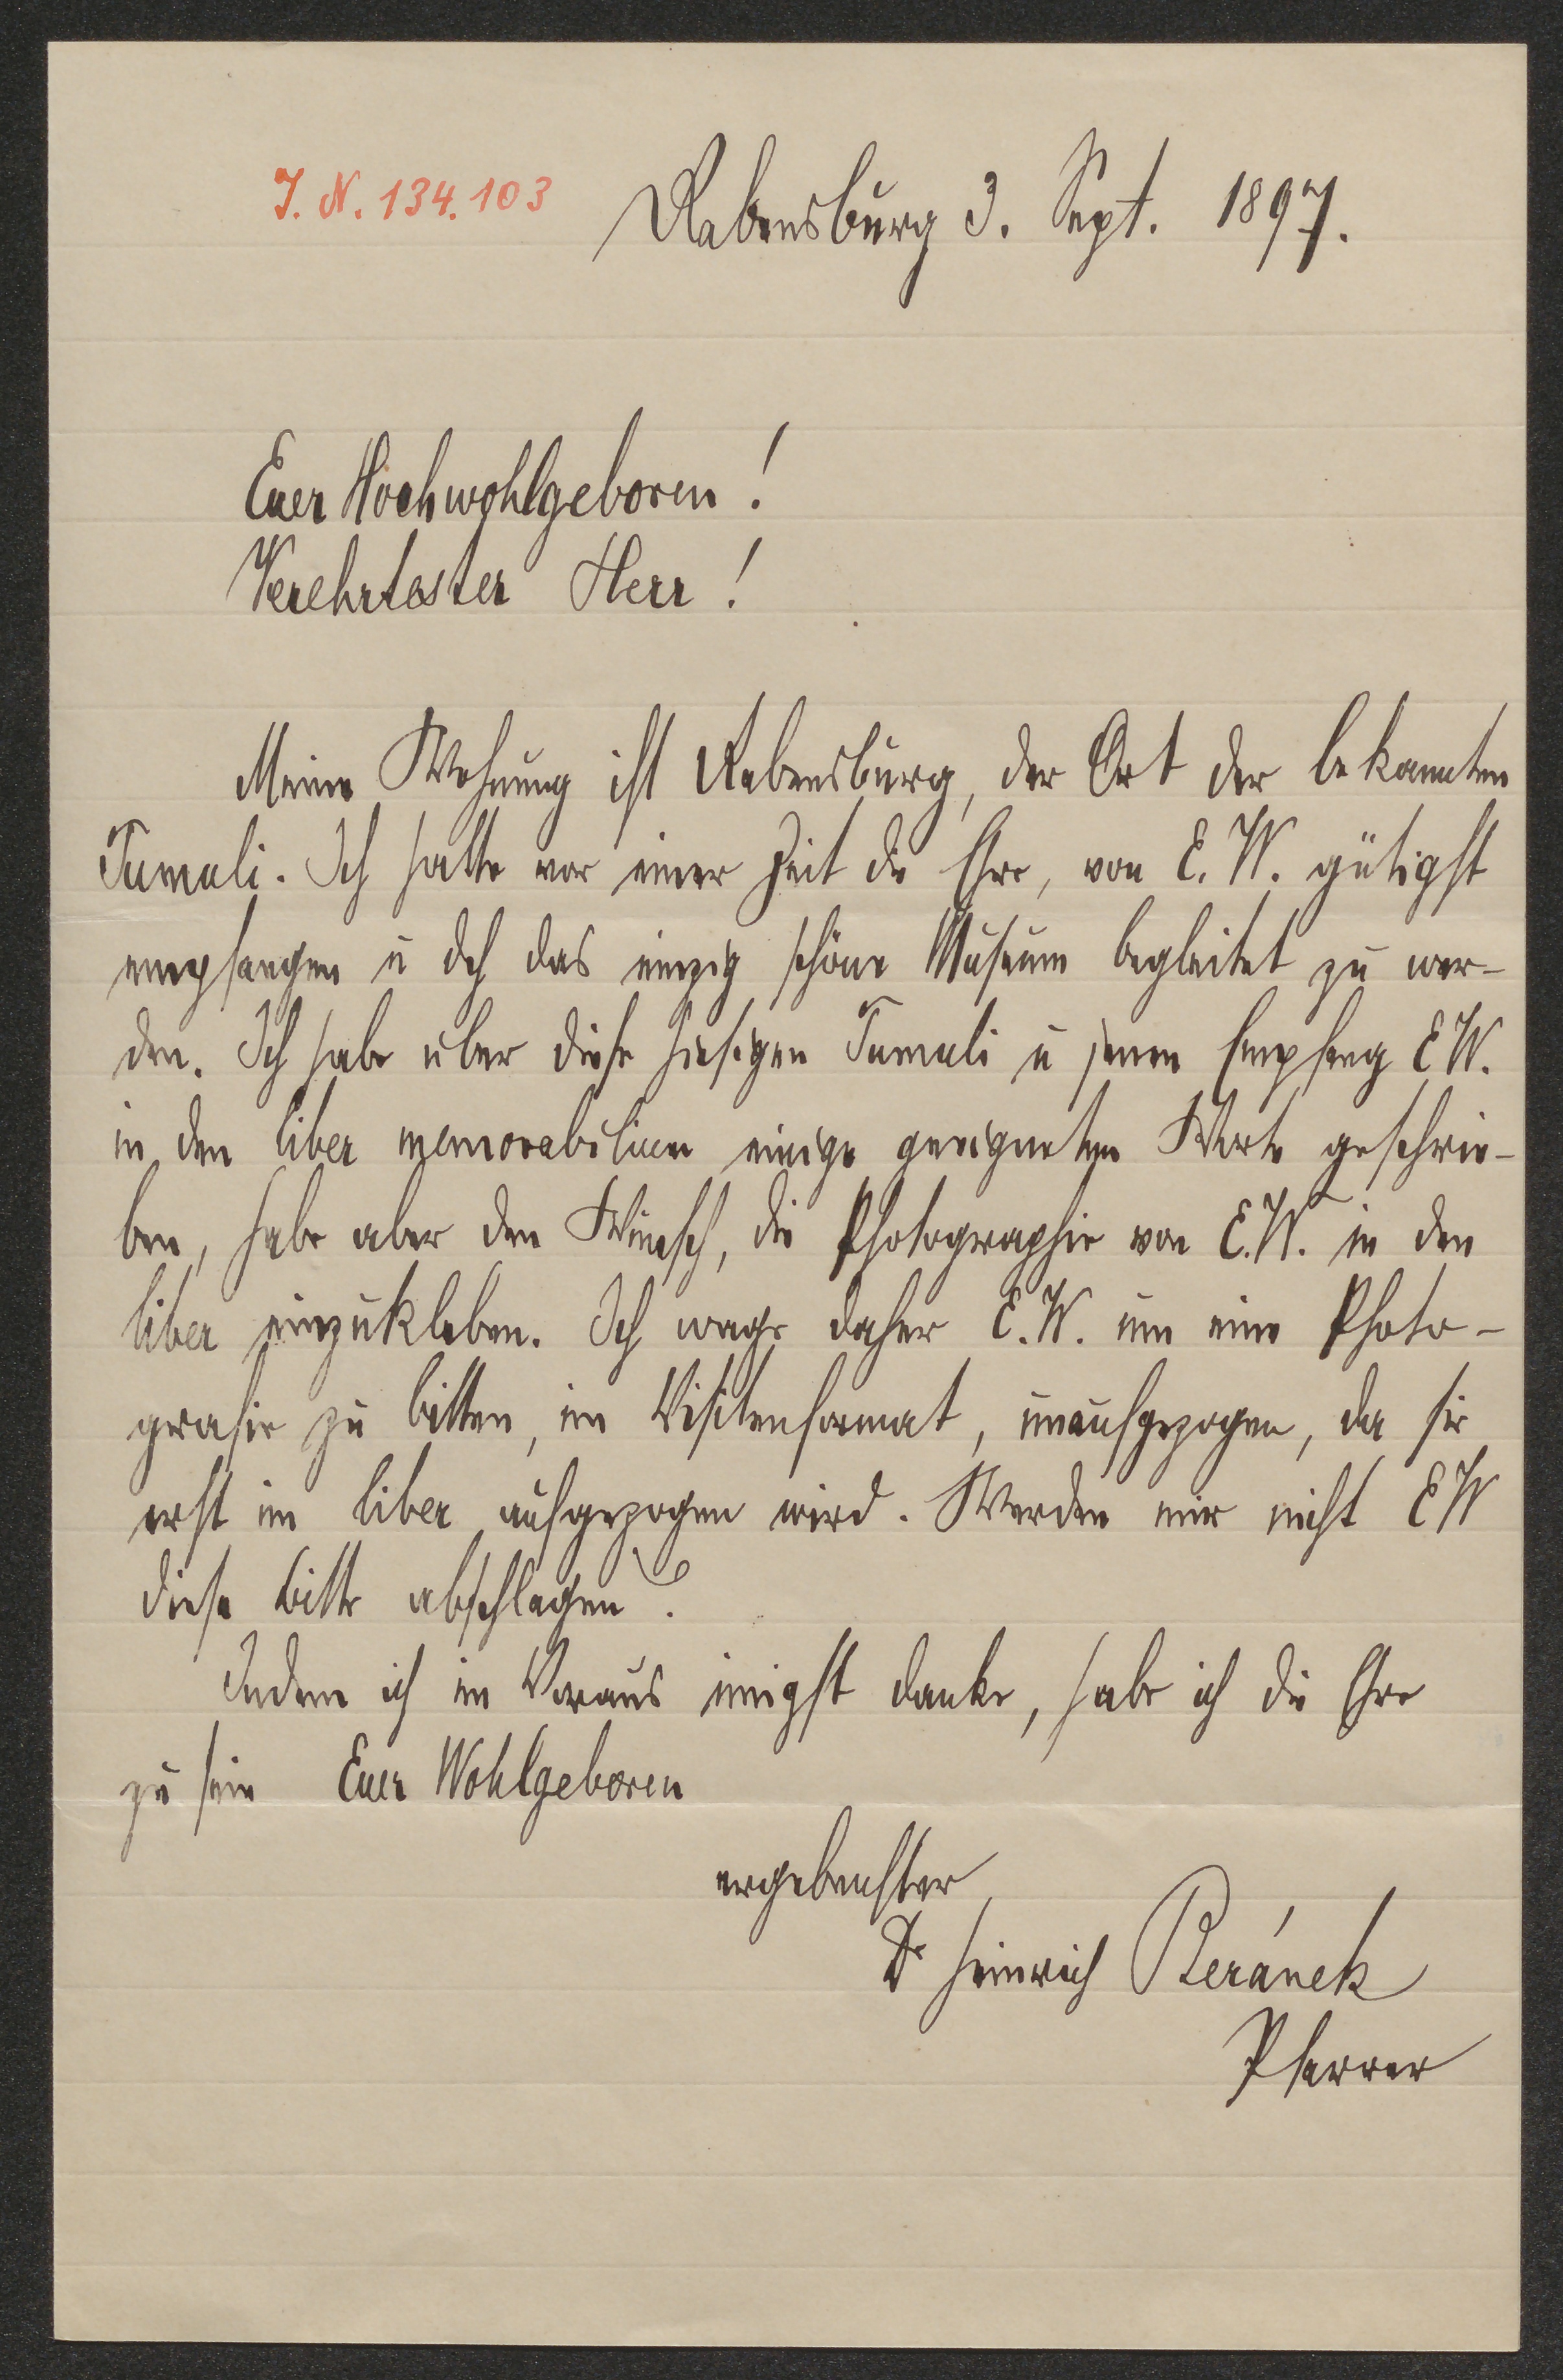 J. N. 134.103
Rabensburg 3. Sept. 1897.
Euer Hochwohlgeboren!
Verehrtester Herr!
Meine Wohnung ist Rabensburg, der Ort der bekannten
Tumuli. Ich hatte vor einer Zeit die Ehre, von E. W. gütigst
empfangen u dch das einzig schöne Museum begleitet zu wer-
den. Ich habe über diese hiesigen Tumuli u jenen Empfang E W.
in den liber memorabilium einige geeigneten Worte geschrie-
ben, habe aber den Wunsch, die Photographie von E. W. in den
liber einzukleben. Ich wage daher E. W. um eine Photo-
grafie zu bitten, im Visitenformat, unaufgezogen, da sie
erst im liber aufgezogen wird. Werden mir nicht E W
diese Bitte abschlagen?
Indem ich im Voraus innigst danke, habe ich die Ehre
zu sein Euer Wohlgeboren
ergebenster
Dr Heinrich Beránek
Pfarrer